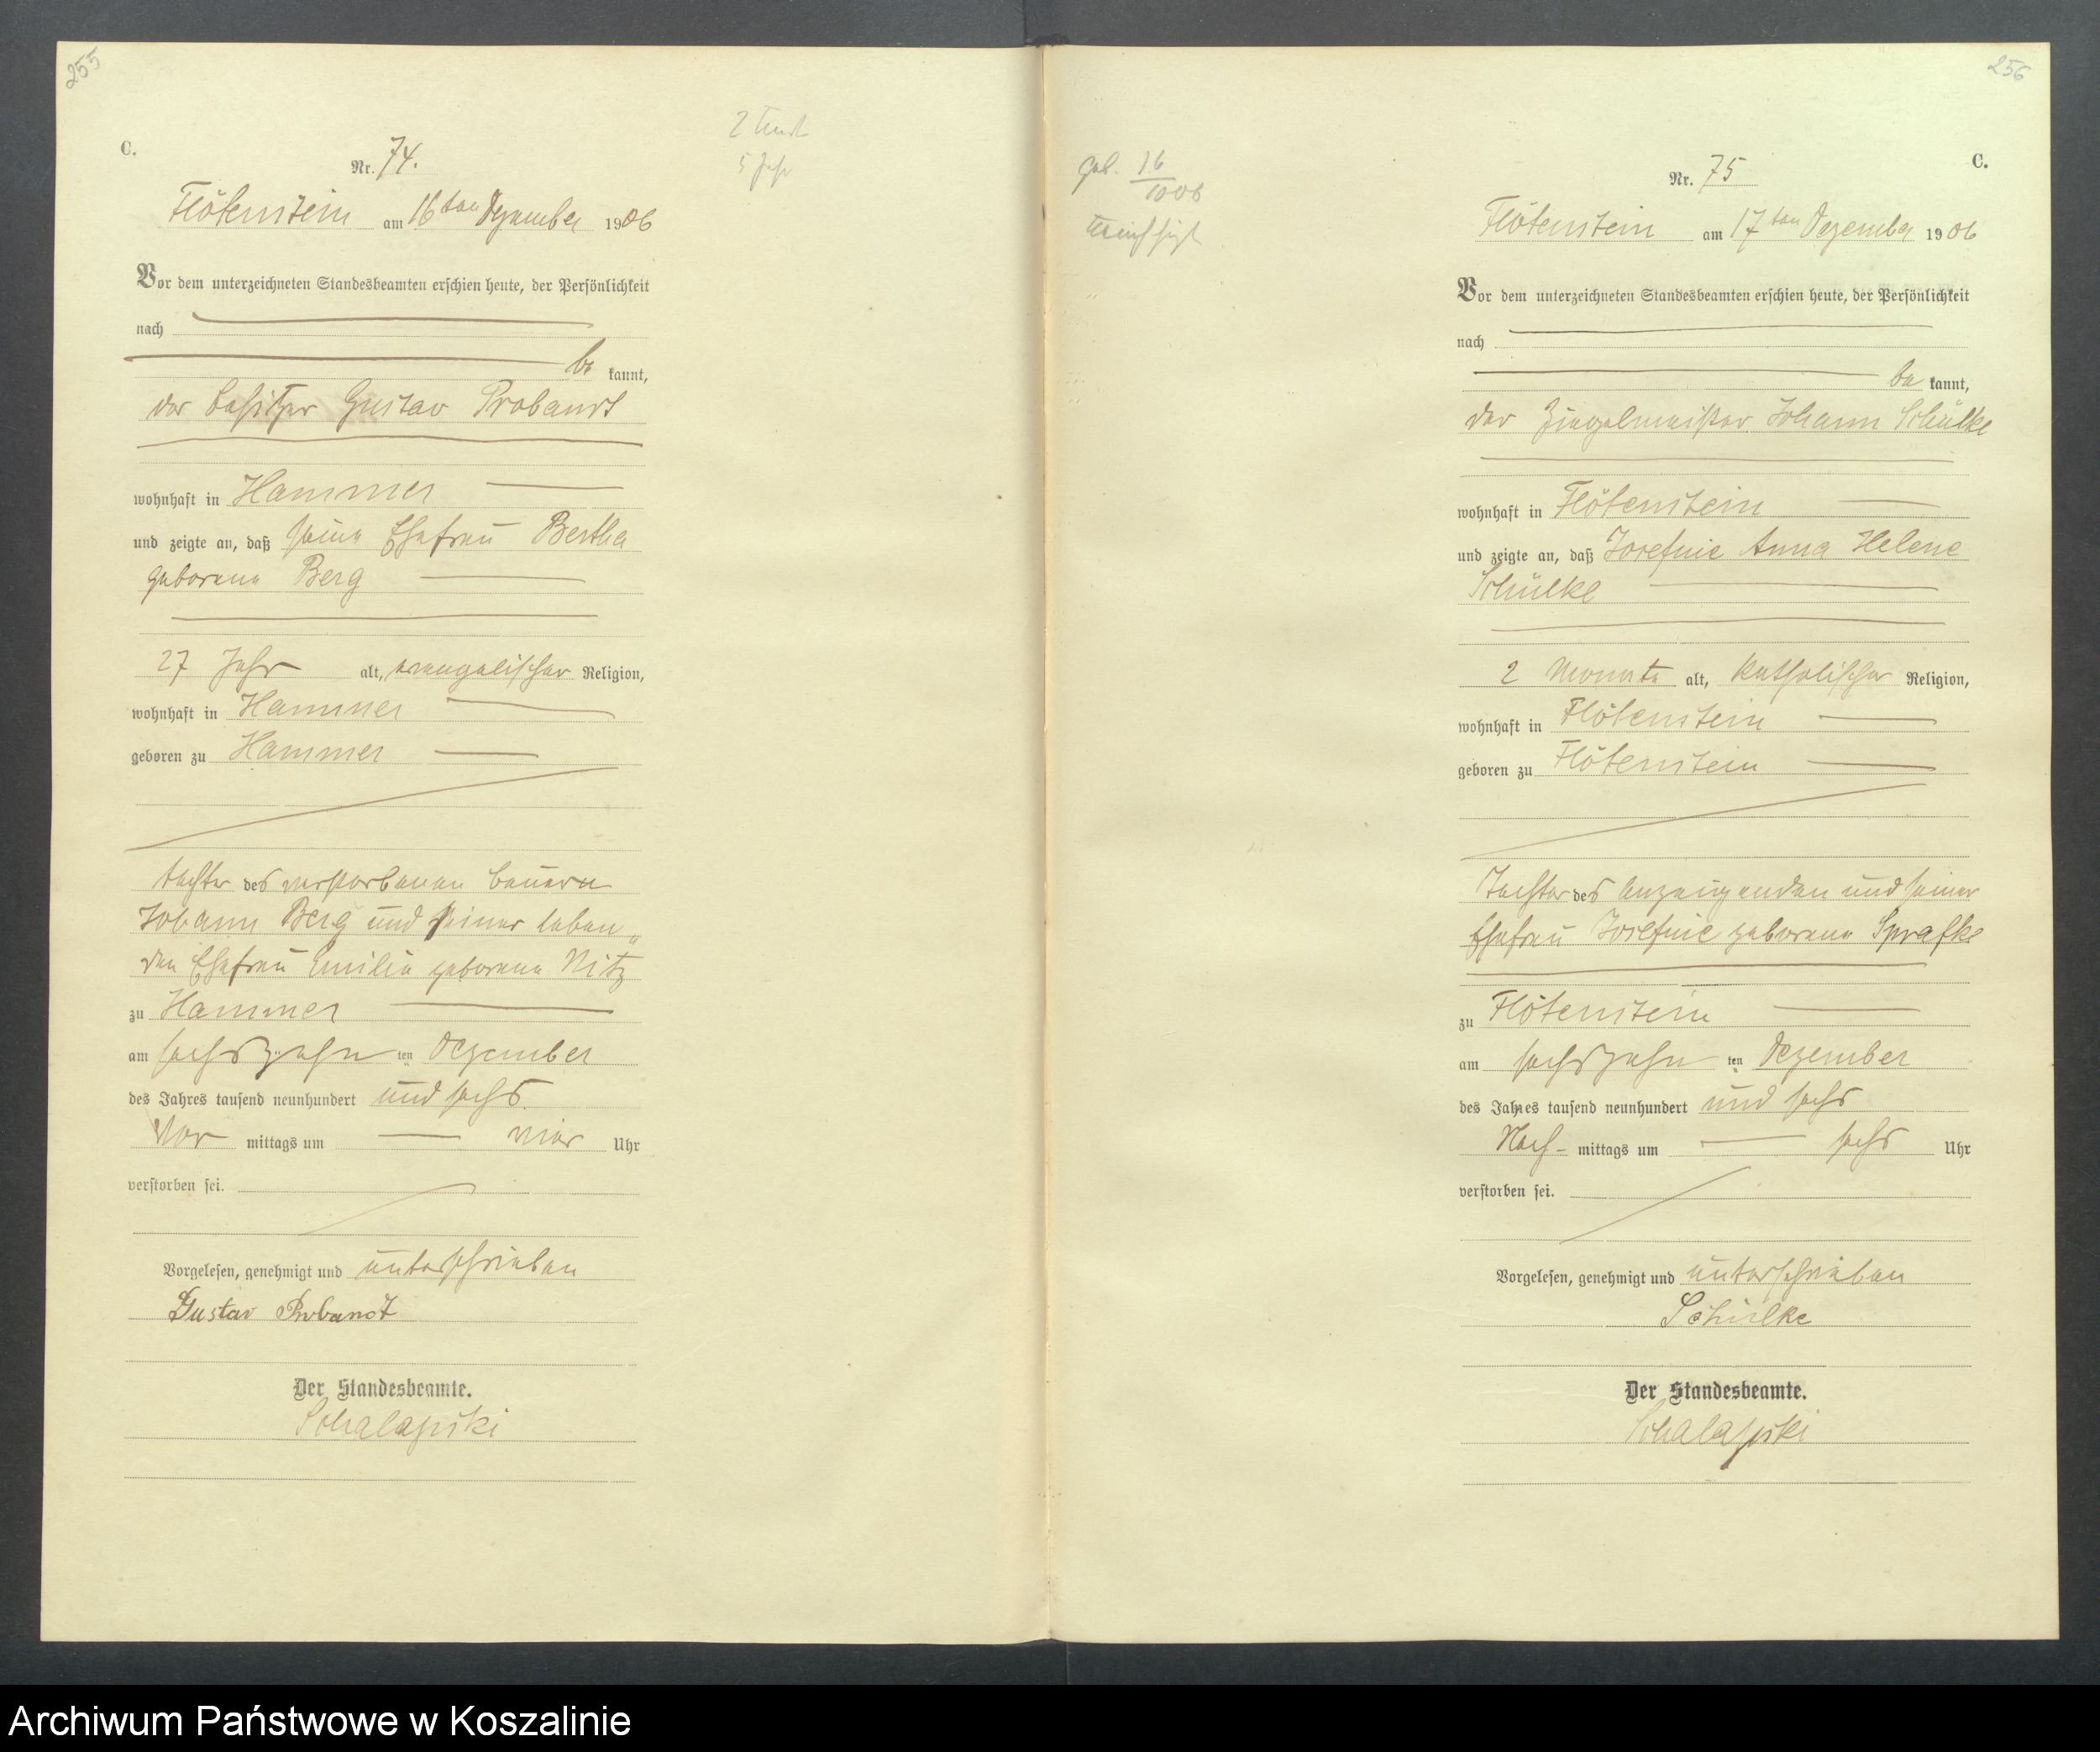 255
C.
Nr. 74.
Flötenstein am 16ten Dezember 1906
Vor dem unterzeichneten Standesbeamten erschien heute, der Persönlichkeit
nach
be kannt,
der Besitzer Gustav Probandt
wohnhaft in Hammer
und zeigte an, daß seine Ehefrau Bertha
geborene Berg
27 Jahr alt, evangelischer Religion,
wohnhaft in Hammer
geboren zu Hammer
Tochter des verstorbenen Bauern
Johann Berg und seiner leben„
den Ehefrau Emilie geborene Nitz
zu Hammer
am sechszehn ten Dezember
des Jahres tausend neunhundert und sechs
Vor mittags um vier Uhr
verstorben sei.
Vorgelesen, genehmigt und unterschrieben
Gustav Probandt
Der Standesbeamte.
2
5 Jahr
256
C.
geb. 16
Nr. 75
Flötenstein am 17ten Dezember 1906
Vor dem unterzeichneten Standesbeamten erschien heute, der Persönlichkeit
nach
be kannt,
der Ziegelmeister Johann Schülke
wohnhaft in Flötenstein
und zeigte an, daß Josefine Anna Helene
Schülke
2 Monate alt, katholischer Religion,
wohnhaft in Flötenstein
geboren zu Flötenstein
Tochter des Anzeigenden und seiner
Ehefrau Josefine geborene Sprafke
zu Flötenstein
am sechszehn ten Dezember
des Jahres tausend neunhundert und sechs
Nach- mittags um sechs Uhr
verstorben sei.
Vorgelesen, genehmigt und unterschrieben
Schülke
Der Standesbeamte.
Archiwum Państwowe w Koszalinie